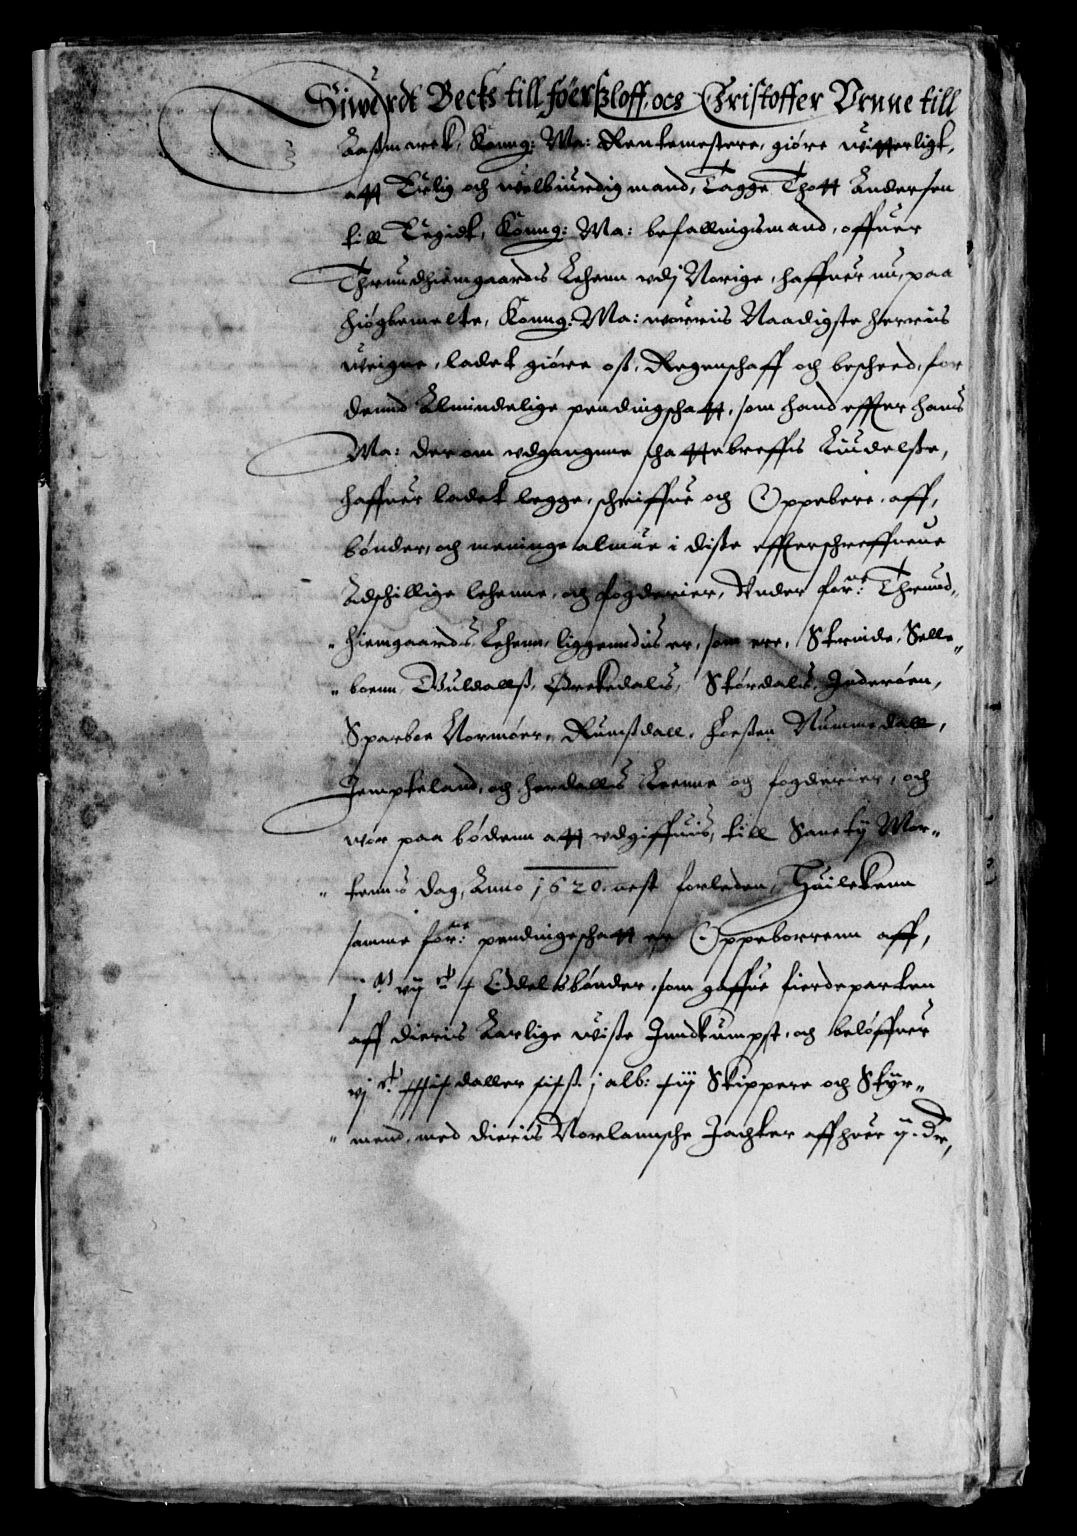 Siwerdt Becks till förßloff, ocs Christoffer Vrnne till
Aaßmarck, Konng: Ma: Rentemestere, giöre witterligt,
att Erlig och welbiurdig mand, Tagge Thott Andersen
till Eegidt, Konng: Ma: befallnigsmand, offuer
Thrundhiemgaardis Lehenn vdj Norige, haffuer nu, paa
höigbemelte, Konng: Ma: worris Naadigste herris
weigne, ladet giöre oß, Regenschaff och bescheed, for
dennd Almindelige pendingschatt, som hand effter hans
Ma: der om vdgangnne schattebreffis Liudelße,
haffuer ladet legge, schriffue och Oppebere, aff,
bönder, och meninge almue i diße effterschreffnene
Adschillige lehenne, och fogderier, Vnder for:ne Thrund-
hiemgaards Lehenn, liggenndis er, som ere, Strinde, Selle-
boenn, Guldallß, Örckedals, Stördals, Inderöen,
Sparboe Normöer, Rumßdall, Foeßen Nummedall,
Jempteland, och Herdallis Leenne og fogderier, och
wor paa bödenn att vdgiffuis, till Sancty Mor-
tennis dag, Anno 1620. nest forleden, Huilckenn
samme for:ne pendingschatt er Oppeborrenn aff,
Odelsbönder, som gaffue fierdeparten
aff dieris Aarlige wiße Inndkumpst, och belöffuer
daller j alb: Skippere och Styr-
mend, med dieris Norlannsche Jachter aff huer ij. Dr,